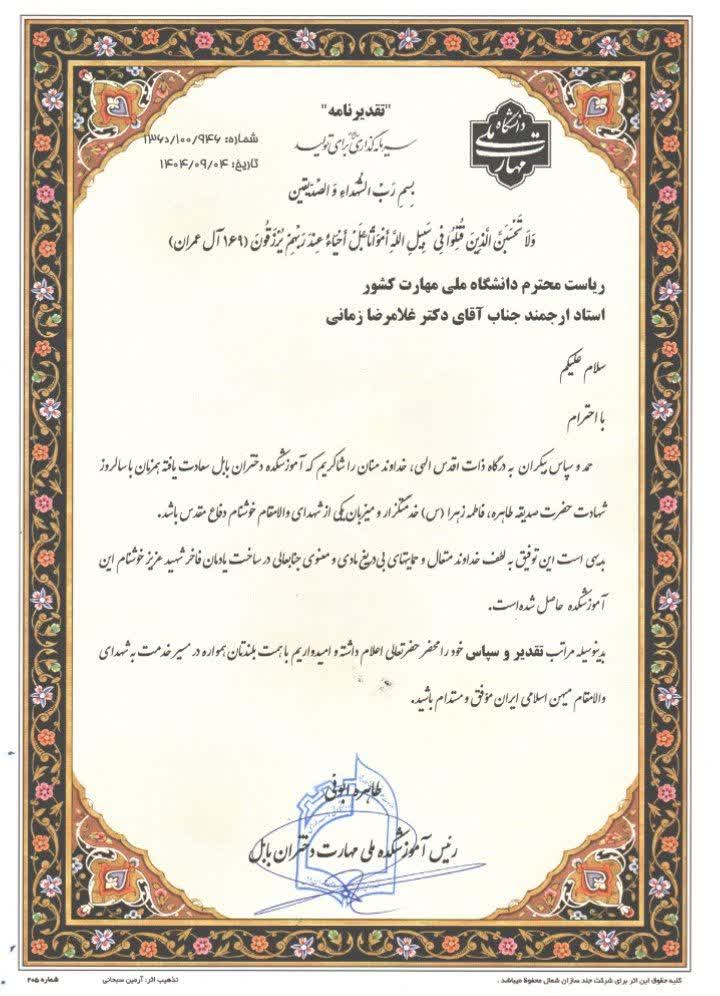 "تقدیرنامه"
سرمایه‌گذاری برای تولید
دانشگاه
ملی
مهارت
شماره: ۱۳۶د/۱۰۰/۹۴۶
تاریخ: ۱۴۰۴/۰۹/۰۴
بِسمِ رَبِّ الشُهداءِ وَ الصِّدیقین
وَلَا تَحْسَبَنَّ الَّذِینَ قُتِلُوا فِی سَبِیلِ اللَّهِ أَمْوَاتًا بَلْ أَحْیَاءٌ عِندَ رَبِّهِمْ یُرْزَقُونَ (۱۶۹ آل عمران)
ریاست محترم دانشگاه ملی مهارت کشور
استاد ارجمند جناب آقای دکتر غلامرضا زمانی
سلام علیکم
با احترام
حمد و سپاس بیکران به درگاه ذات اقدس الهی، خداوند منان را شاکریم که آموزشکده دختران بابل سعادت یافته همزمان با سالروز
شهادت حضرت صدیقه طاهره، فاطمه زهرا (س) خدمتگزار و میزبان یکی از شهدای والامقام خوشنام دفاع مقدس باشد.
بدیهی است این توفیق به لطف خداوند متعال و حمایتهای بی‌دریغ مادی و معنوی جنابعالی در ساخت یادمان فاخر شهید عزیز خوشنام این
آموزشکده حاصل شده است.
بدینوسیله مراتب تقدیر و سپاس خود را محضر حضرتعالی اعلام داشته و امیدواریم با همت بلندتان همواره در مسیر خدمت به شهدای
والامقام میهن اسلامی ایران موفق و مستدام باشید.
طاهره ابوئی
رئیس آموزشکده ملی مهارت دختران بابل
کلیه حقوق این اثر برای شرکت جلد سازان شمال محفوظ میباشد.
تذهیب اثر: آرمین سبحانی
شماره ۲۰۵